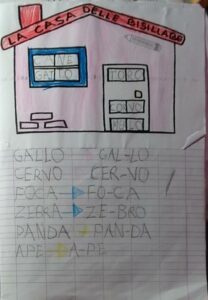 LA CASA DELLE BISILLABE
GALLO
FOCA
CORVO
GALLO GAL-LO
CERVO CER-VO
FOCA FO-CA
ZEBRA ZE-BRO
PANDA PAN-DA
APE A-PE